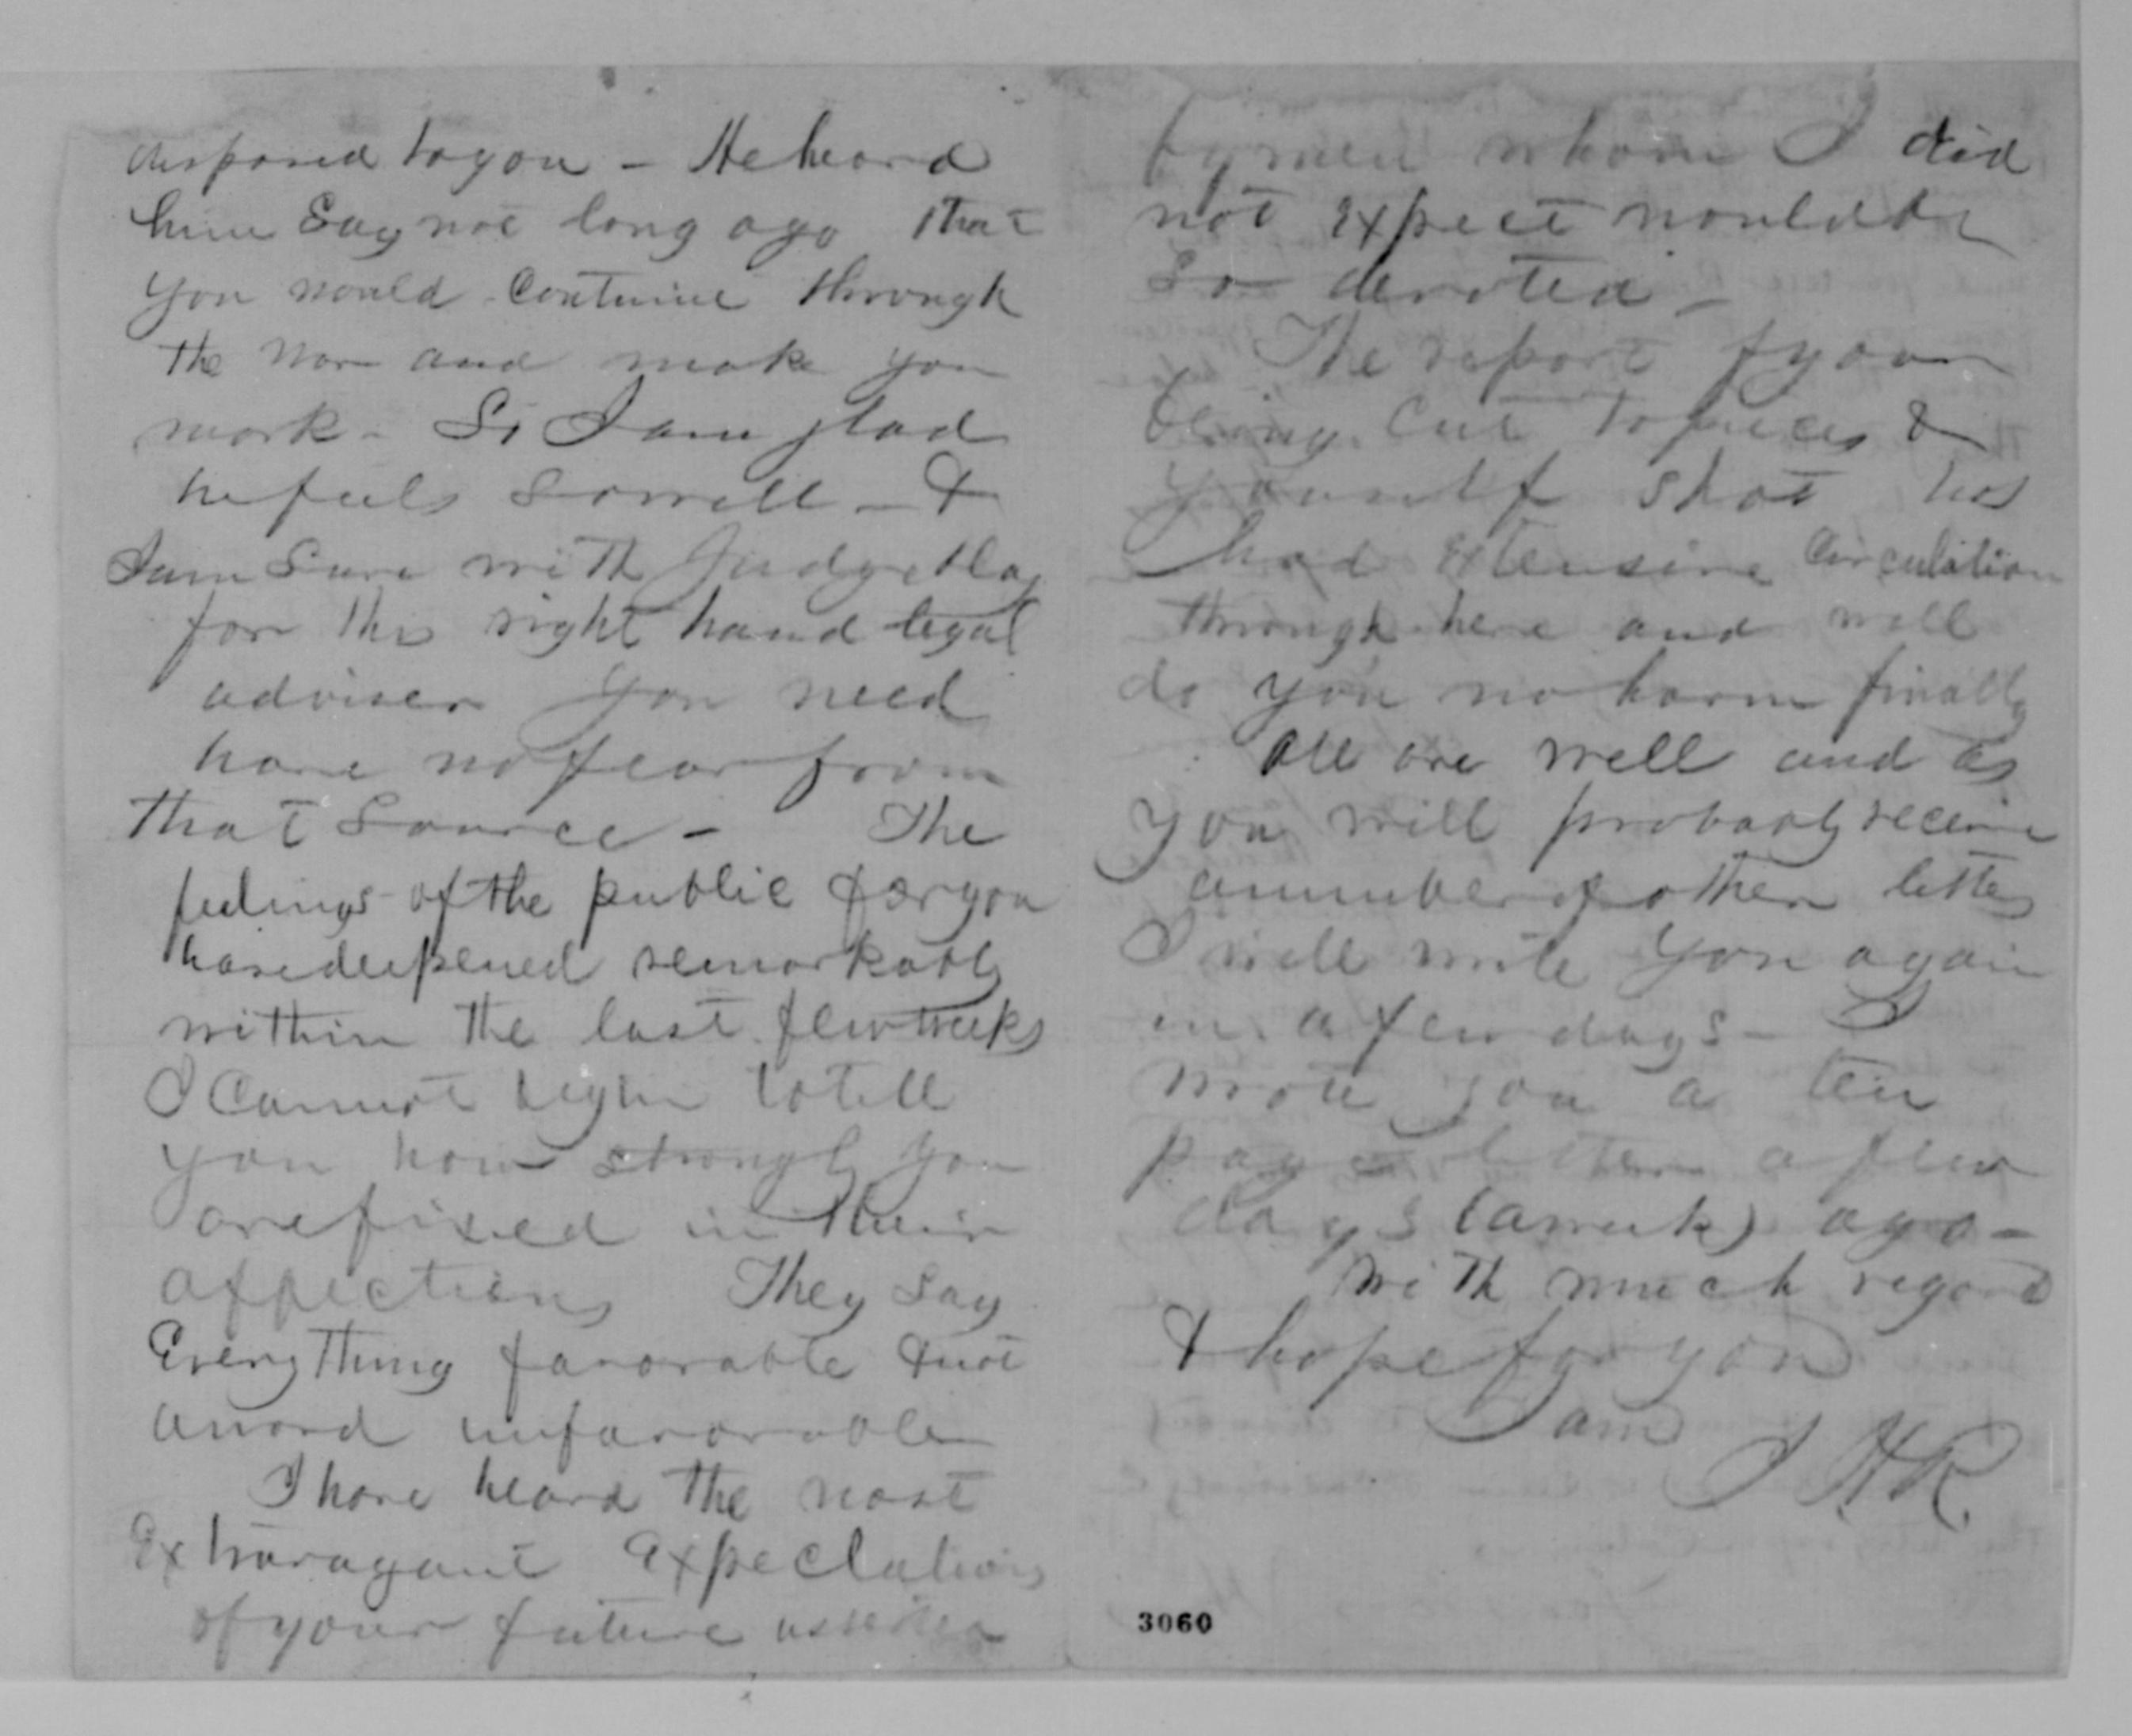 disposed to you - He heard
him Say not long ago that
you would continue through
the war and make your
mark - So I am glad
he feels so well - &
I am Sure with Judge Hoy
for the right hand legal
adviser you need
have no fear from
that Source - The
feelings of the public for you
have deepened remarkably
within the last few weeks
I cannot begin to tell
you how strongly you
are fixed in their
affections They say
Everything favorable & not
a word unfavorable
I have heard the most
Extravagant expectations
of your future
by men whom I did
not expect would be
so devoted -
The report of your
being cut to pieces &
yourself shot has
had extensive circulation
through here and will
do you no harm finally
All are well and as
you will probably receive
a number of other letters
I will write you again
in a few days - I
wrote you a ten
page letter a few
days (a week) ago -
With much regard
& hope for you
I am J H R.
3060